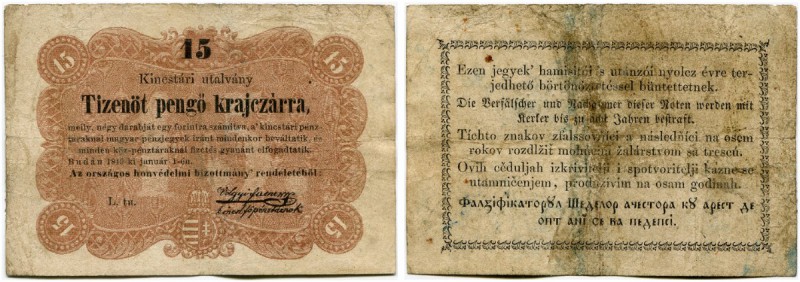 15
15
15
Kincstári utalvány
Tizenöt pengő krajczárra,
melly, négy darabját egy forintra számítva, a' kincstári pénz-
táraknál magyar pénzjegyek iránt mindenkor beváltatik, és
minden köz-pénztáraknál fizetés gyanánt elfogadtatik.
Budán 1849-ki január 1-én.
Az országos honvédelmi bizottmány rendeletéből
L. tu.
15
15
Ezen jegyek' hamisítói 's utánzói nyolcz évre ter-
jedhető börtönöztetéssel büntettetnek.
Die Verfälscher und Nachahmer dieser Noten werden mit
Kerker bis zu acht Jahren bestraft.
Tíchto znakov zfalssovňíci a následňíci na osem
rokov rozdĺžiť mohúcňa žalárstvom sa trescú.
Ovih ceduljah izkrivitelji i spotvoritelji kazne se
utamničenjem, produživim na osam godinah.
Фалзіфікаторꙋл Шеделор ачестора кꙋ арест де
опт анї се ва педепсі.